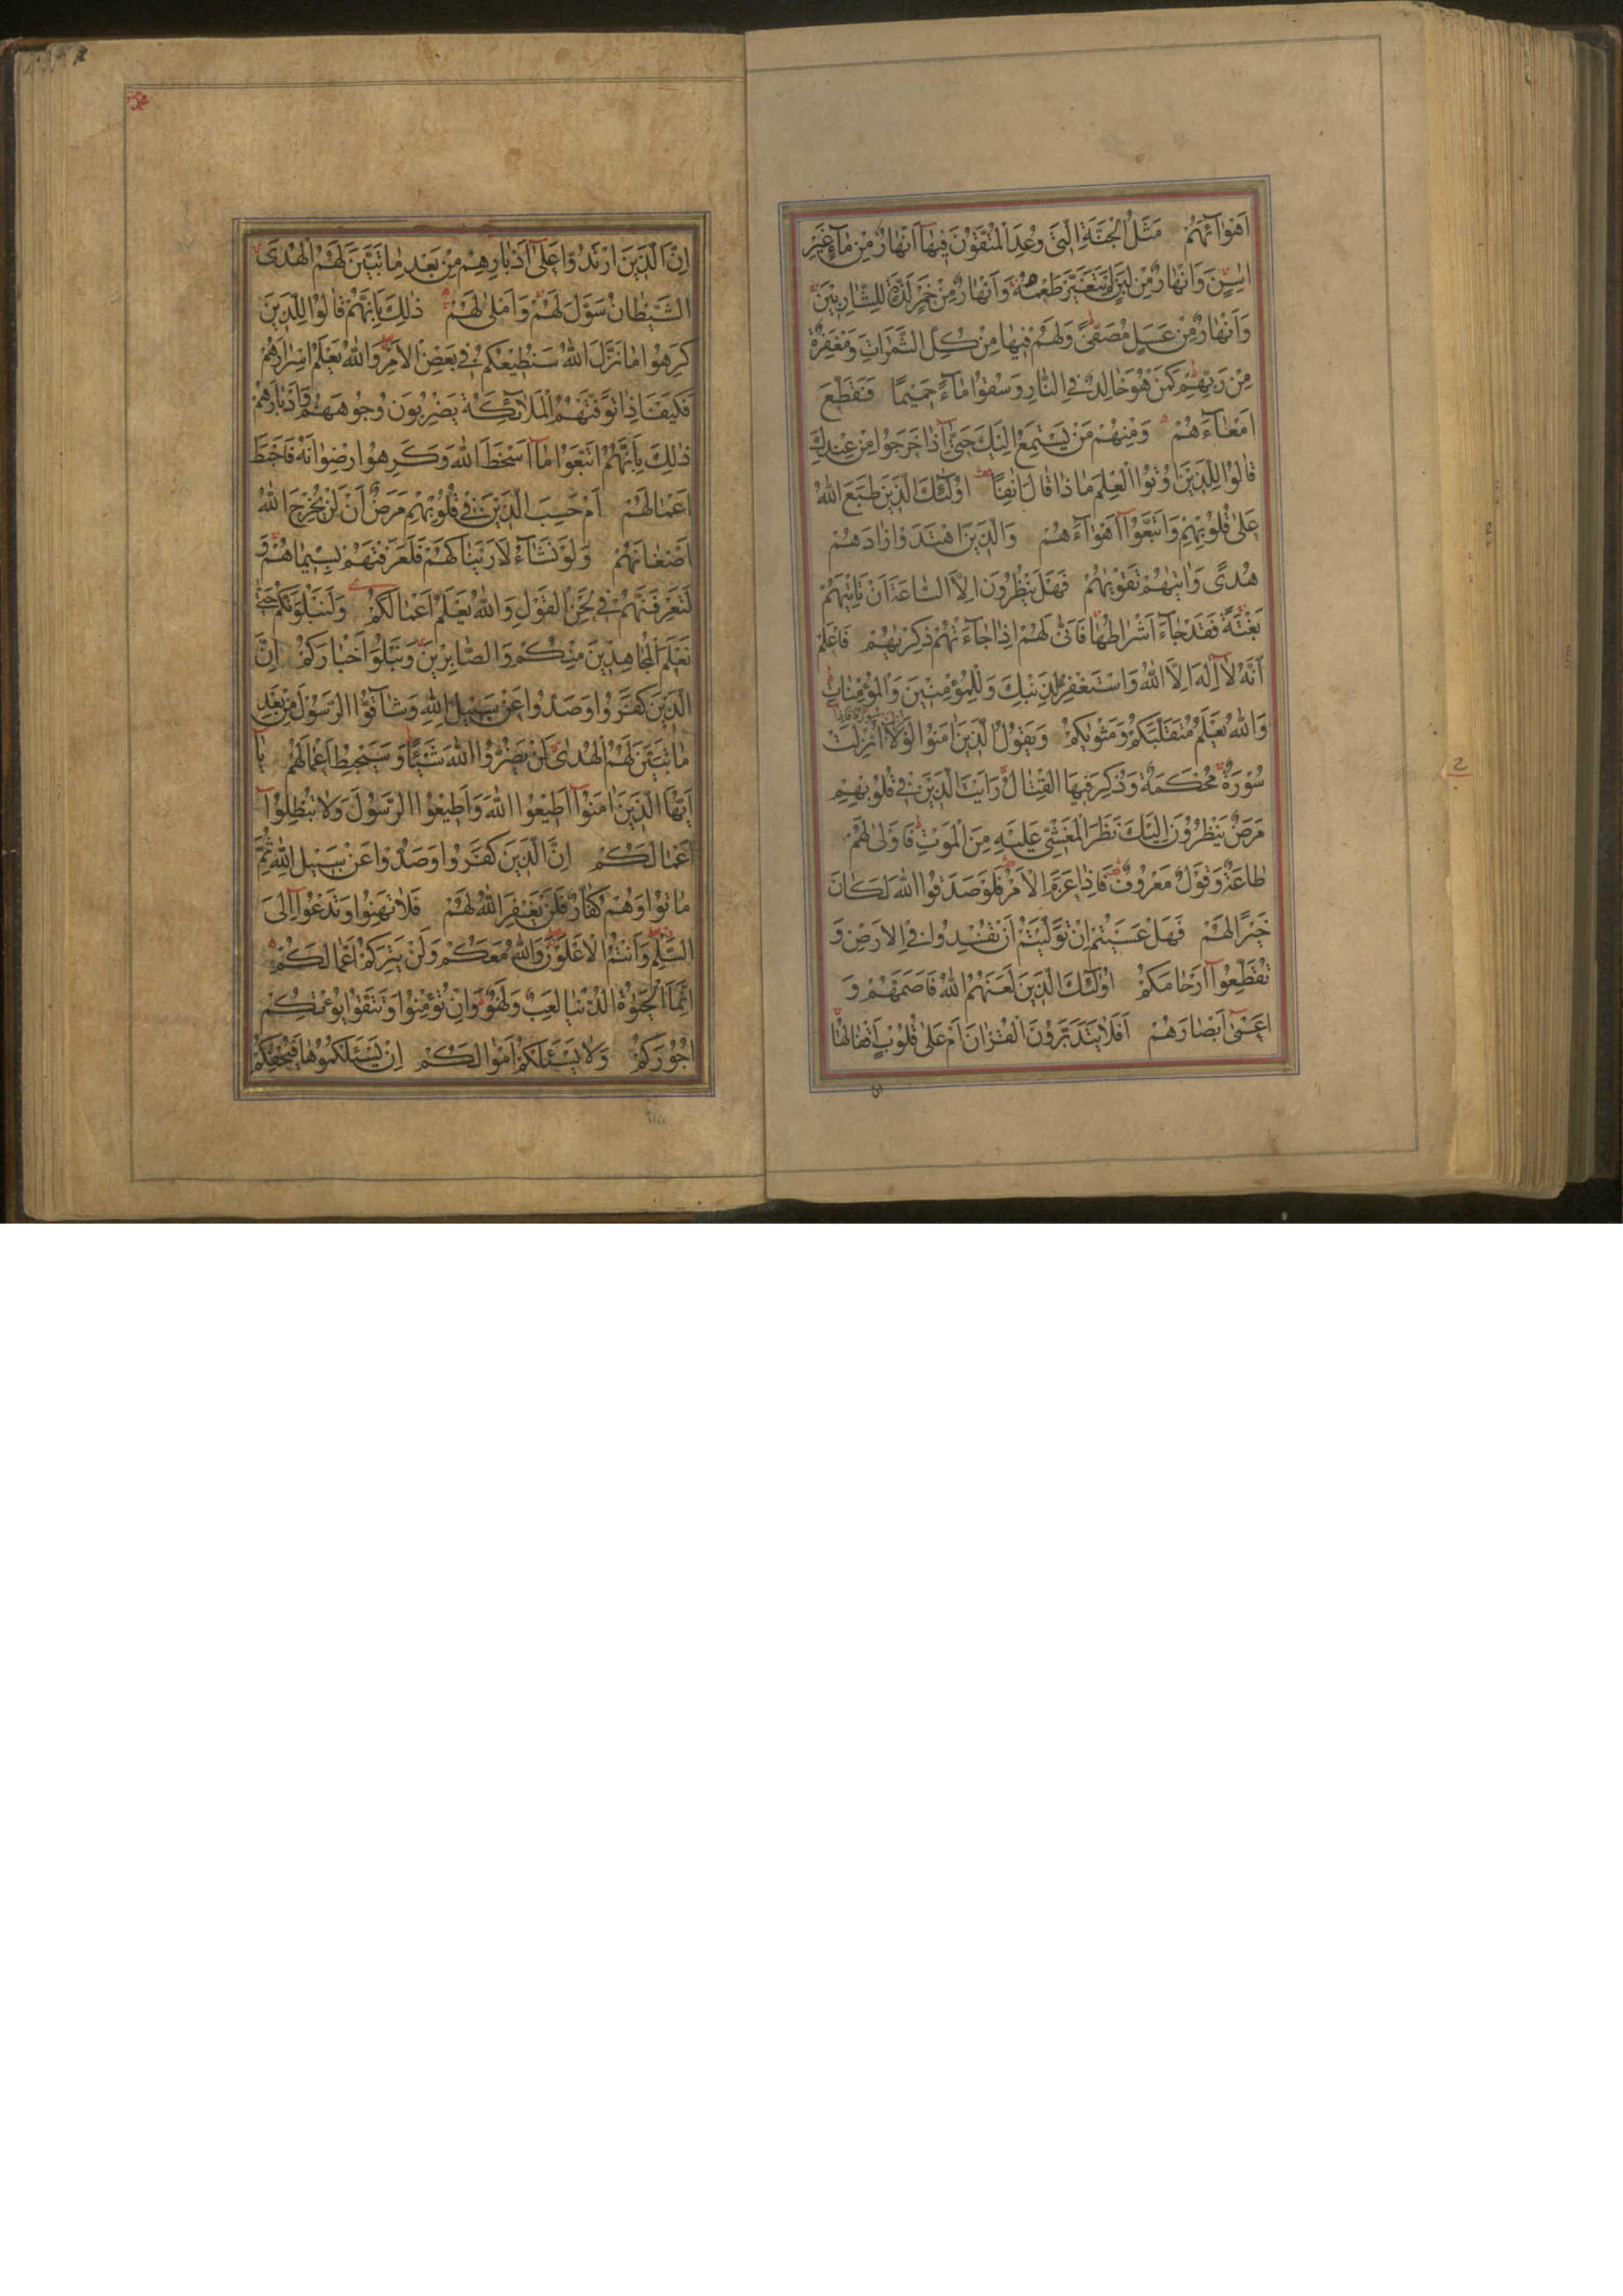 اَهْوٰٓائَهُمْ مَثَلُ الْجَنَّةِ الَّتِى وُعِدَ الْمُتَّقُوْنَ فِيْهٰٓا اَنْهٰارٌ مِنْ مٰآءٍ غَيْرِ
اٰسِنٍ وَاَنْهٰارٌ مِنْ لَبَنٍ لَمْ يَتَغَيَّرْ طَعْمُهُ وَاَنْهٰارٌ مِنْ خَمْرٍ لَذَّةٍ لِلشّٰارِبِيْنَ
وَاَنْهٰارٌ مِنْ عَسَلٍ مُصَفًّى وَلَهُمْ فِيْهٰا مِنْ كُلِّ الثَّمَرٰاتِ وَمَغْفِرَةٌ
مِنْ رَبِّهِمْ كَمَنْ هُوَ خٰالِدٌ فِى النّٰارِ وَسُقُوْا مٰآءً حَمِيْمًا فَقَطَّعَ
اَمْعٰآءَهُمْ وَمِنْهُمْ مَنْ يَسْتَمِعُ اِلَيْكَ حَتّٰىٓ اِذٰا خَرَجُوْا مِنْ عِنْدِكَ
قٰالُوْا لِلَّذِيْنَ اُوْتُوا الْعِلْمَ مٰاذٰا قٰالَ اٰنِفًا اُولٰٓئِكَ الَّذِيْنَ طَبَعَ اللّٰهُ
عَلٰى قُلُوْبِهِمْ وَاتَّبَعُوْٓا اَهْوٰآءَهُمْ وَالَّذِيْنَ اهْتَدَوْا زٰادَهُمْ
هُدًى وَاٰتٰيهُمْ تَقْوٰيهُمْ فَهَلْ يَنْظُرُوْنَ اِلَّا السّٰاعَةَ اَنْ تَاْتِيَهُمْ
بَغْتَةً فَقَدْ جٰآءَ اَشْرٰاطُهٰا فَاَنّٰى لَهُمْ اِذٰا جٰآءَتْهُمْ ذِكْرٰيهُمْ فَاعْلَمْ
اَنَّهُ لٰآ اِلٰهَ اِلَّا اللّٰهُ وَاسْتَغْفِرْ لِذَنْبِكَ وَلِلْمُؤْمِنِيْنَ وَالْمُؤْمِنٰاتِ
وَاللّٰهُ يَعْلَمُ مُتَقَلَّبَكُمْ وَمَثْوٰيكُمْ وَيَقُوْلُ الَّذِيْنَ اٰمَنُوْا لَوْلٰا نُزِّلَتْ
سُوْرَةٌ مُحْكَمَةٌ وَذُكِرَ فِيْهَا الْقِتٰالُ رَاَيْتَ الَّذِيْنَ فِى قُلُوْبِهِمْ
مَرَضٌ يَنْظُرُوْنَ اِلَيْكَ نَظَرَ الْمَغْشِيِّ عَلَيْهِ مِنَ الْمَوْتِ فَاَوْلٰى لَهُمْ
طٰاعَةٌ وَقَوْلٌ مَعْرُوْفٌ فَاِذٰا عَزَمَ الْاَمْرُ فَلَوْ صَدَقُوا اللّٰهَ لَكٰانَ
خَيْرًا لَهُمْ فَهَلْ عَسَيْتُمْ اِنْ تَوَلَّيْتُمْ اَنْ تُفْسِدُوا فِى الْاَرْضِ وَ
تُقَطِّعُوْٓا اَرْحٰامَكُمْ اُولٰٓئِكَ الَّذِيْنَ لَعَنَهُمُ اللّٰهُ فَاَصَمَّهُمْ وَ
اَعْمٰىٓ اَبْصٰارَهُمْ اَفَلٰا يَتَدَبَّرُوْنَ الْقُرْاٰنَ اَمْ عَلٰى قُلُوْبٍ اَقْفٰالُهٰا
اِنَّ الَّذِيْنَ ارْتَدُّوْا عَلٰىٓ اَدْبٰارِهِمْ مِنْ بَعْدِ مٰا تَبَيَّنَ لَهُمُ الْهُدَى
الشَّيْطٰانُ سَوَّلَ لَهُمْ وَاَمْلٰى لَهُمْ ذٰلِكَ بِاَنَّهُمْ قٰالُوْا لِلَّذِيْنَ
كَرِهُوْا مٰا نَزَّلَ اللّٰهُ سَنُطِيْعُكُمْ فِى بَعْضِ الْاَمْرِ وَاللّٰهُ يَعْلَمُ اِسْرٰارَهُمْ
فَكَيْفَ اِذٰا تَوَفَّتْهُمُ الْمَلٰٓائِكَةُ يَضْرِبُوْنَ وُجُوْهَهُمْ وَاَدْبٰارَهُمْ
ذٰلِكَ بِاَنَّهُمُ اتَّبَعُوْا مٰآ اَسْخَطَ اللّٰهَ وَكَرِهُوْا رِضْوٰانَهُ فَاَحْبَطَ
اَعْمٰالَهُمْ اَمْ حَسِبَ الَّذِيْنَ فِى قُلُوْبِهِمْ مَرَضٌ اَنْ لَنْ يُخْرِجَ اللّٰهُ
اَضْغٰانَهُمْ وَلَوْ نَشٰآءُ لَاَرَيْنٰاكَهُمْ فَلَعَرَفْتَهُمْ بِسِيْمٰاهُمْ وَ
لَتَعْرِفَنَّهُمْ فِى لَحْنِ الْقَوْلِ وَاللّٰهُ يَعْلَمُ اَعْمٰالَكُمْ وَلَنَبْلُوَنَّكُمْ حَتّٰى
نَعْلَمَ الْمُجٰاهِدِيْنَ مِنْكُمْ وَالصّٰابِرِيْنَ وَنَبْلُوَا اَخْبٰارَكُمْ اِنَّ
الَّذِيْنَ كَفَرُوْا وَصَدُّوْا عَنْ سَبِيْلِ اللّٰهِ وَشٰآقُّوا الرَّسُوْلَ مِنْ بَعْدِ
مٰا تَبَيَّنَ لَهُمُ الْهُدٰى لَنْ يَضُرُّوا اللّٰهَ شَيْئًا وَسَيُحْبِطُ اَعْمٰالَهُمْ يٰٓا
اَيُّهَا الَّذِيْنَ اٰمَنُوْٓا اَطِيْعُوا اللّٰهَ وَاَطِيْعُوا الرَّسُوْلَ وَلٰا تُبْطِلُوْٓا
اَعْمٰالَكُمْ اِنَّ الَّذِيْنَ كَفَرُوْا وَصَدُّوْا عَنْ سَبِيْلِ اللّٰهِ ثُمَّ
مٰاتُوْا وَهُمْ كُفّٰارٌ فَلَنْ يَغْفِرَ اللّٰهُ لَهُمْ فَلٰا تَهِنُوْا وَتَدْعُوْٓا اِلَى
السَّلْمِ وَاَنْتُمُ الْاَعْلَوْنَ وَاللّٰهُ مَعَكُمْ وَلَنْ يَتِرَكُمْ اَعْمٰالَكُمْ
اِنَّمَا الْحَيٰوةُ الدُّنْيٰا لَعِبٌ وَلَهْوٌ وَاِنْ تُؤْمِنُوْا وَتَتَّقُوْا يُؤْتِكُمْ
اُجُوْرَكُمْ وَلٰا يَسْئَلْكُمْ اَمْوٰالَكُمْ اِنْ يَسْئَلْكُمُوْهٰا فَيُحْفِكُمْ